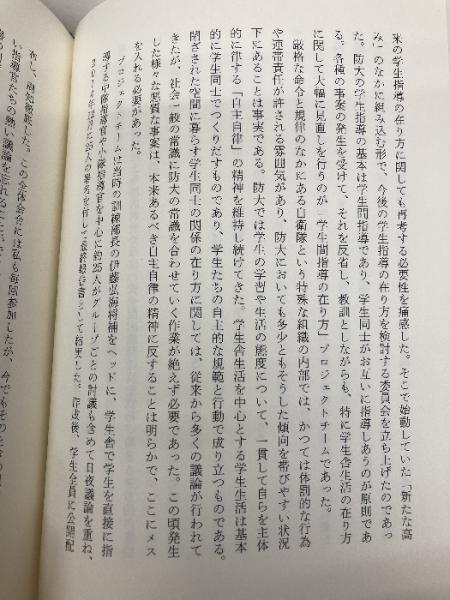 来の学生指導の在り方に関しても再考する必要性を痛感した。そこで始動していた「新たな高
み」のなかに組み込む形で、今後の学生指導の在り方を検討する委員会を立ち上げたのであっ
た。防大の学生指導の基本は学生間指導であり、学生同士がお互いに指導しあうのが原則であ
る。各種の事案の発生を受けて、それを反省し、教訓としながらも、特に学生舎生活の在り方
に関して大幅に見直しを行うのが「学生間指導の在り方」プロジェクトチームであった。
厳格な命令と規律のなかにある自衛隊という特殊な組織の内部では、かつては体罰的な行為
や連帯責任が許される雰囲気があり、防大においても多少ともそうした傾向を帯びやすい状況
下にあることは事実である。防大では学生の学習や生活の態度について、一貫して自らを主体
的に律する「自主自律」の精神を維持し続けてきた。学生舎生活を中心とする学生生活は基本
的に学生同士でつくりだすものであり、学生たちの自主的な規範と行動で成り立つものである。
閉ざされた空間に暮らす学生同士の関係の在り方に関しては、従来から多くの議論が行われて
きたが、社会一般の常識に防大の常識を合わせていく作業が絶えず必要であった。この頃発生
した様々な悪質な事案は、本来あるべき自主自律の精神に反することは明らかで、ここにメス
を入れる必要があった。
プロジェクトチームは当時の訓練部長の伊藤弘海将補をヘッドに、学生舎で学生を直接に指
導する中隊指導官や小隊指導官を中心に約25人がグループごとの討議も含めて日夜議論を重ね、
年 月に25人の署名を付して「最終報告書」として結実した。作成後、学生全員に公開配
布し、周知徹底した。この全体会合には私も毎回参加したが、今でもそのときの
い指導官たちの熱い議論を忘れることが